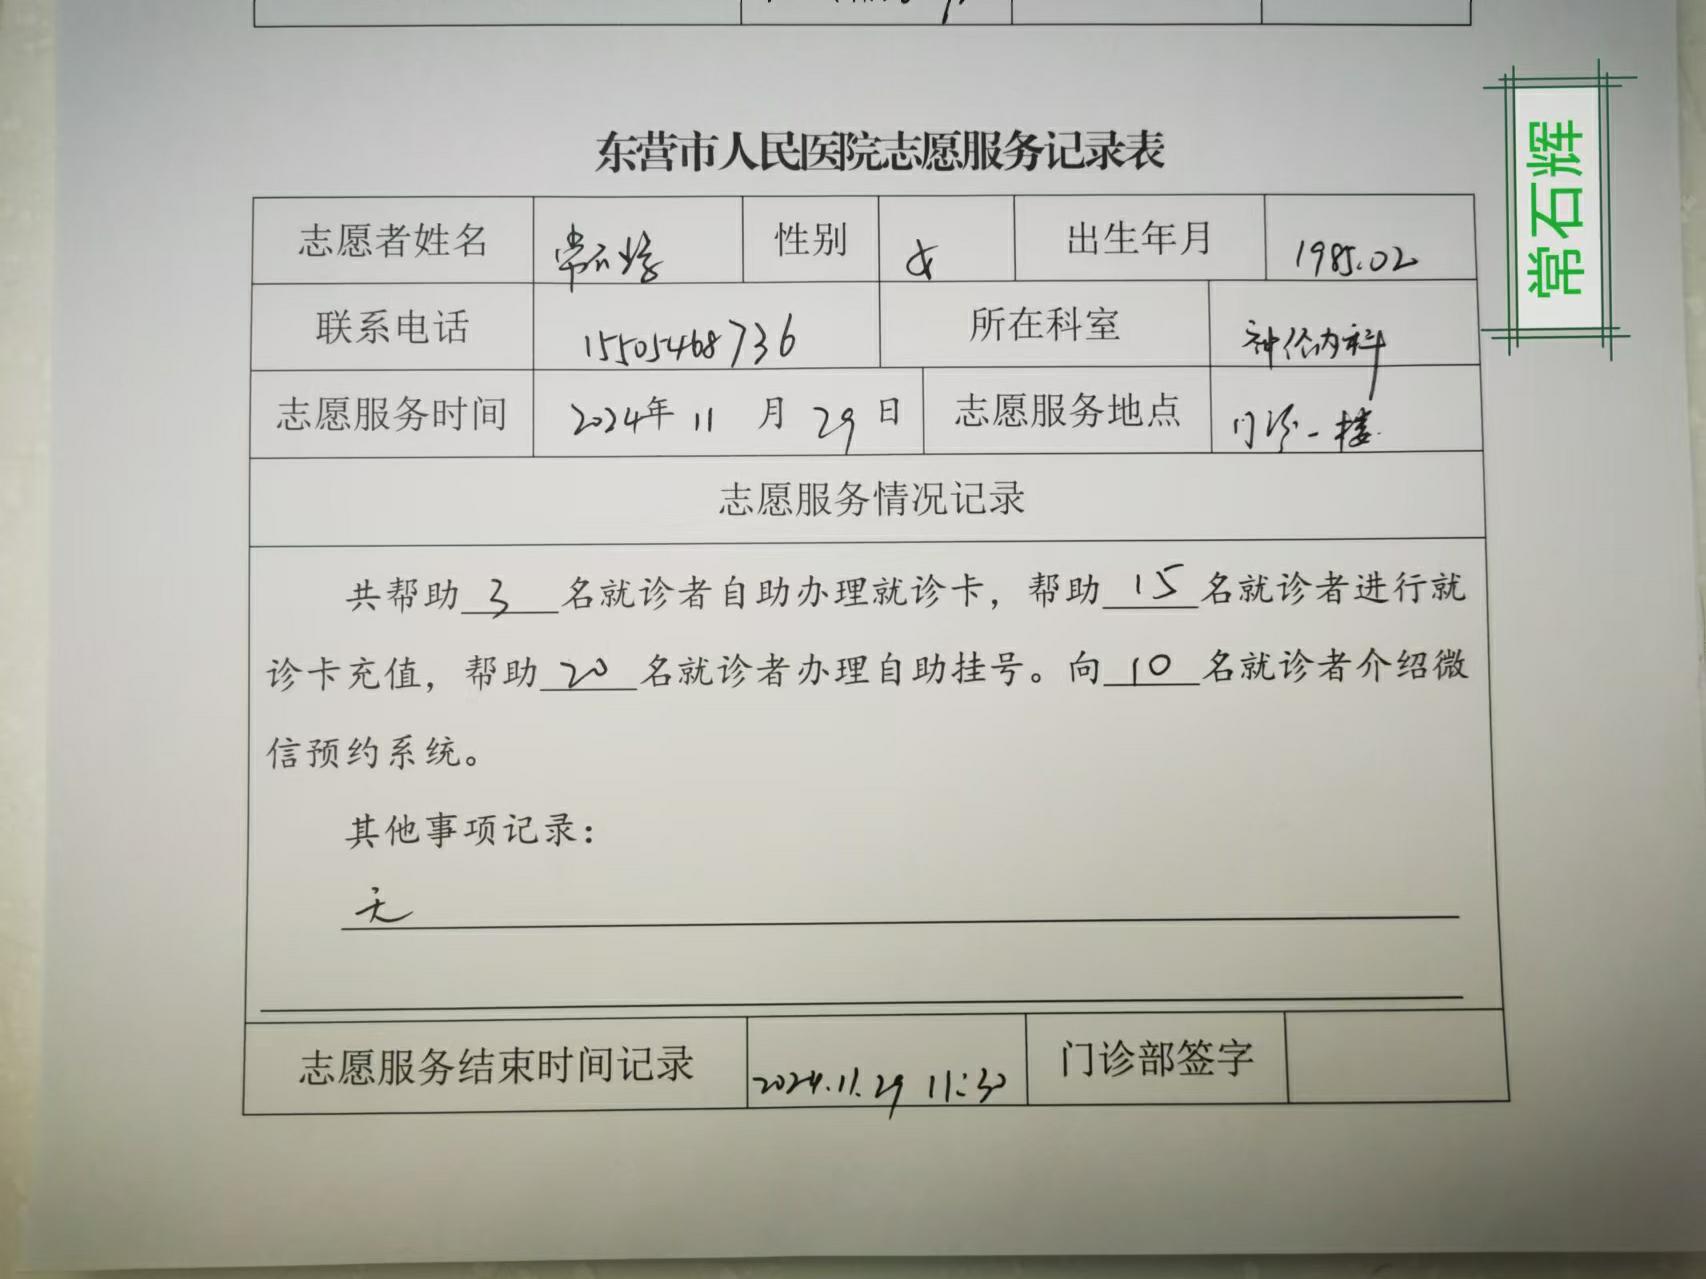 东营市人民医院志愿服务记录表
志愿者姓名 常石辉 性别 女 出生年月 1985.02
联系电话 15505468736 所在科室 神经内科
志愿服务时间 2024年 11 月 29 日 志愿服务地点 门诊一楼
志愿服务情况记录
共帮助 3 名就诊者自助办理就诊卡，帮助 15 名就诊者进行就
诊卡充值，帮助 20 名就诊者办理自助挂号。向 10 名就诊者介绍微
信预约系统。
其他事项记录：
无
志愿服务结束时间记录 2024.11.29 11:30 门诊部签字
常石辉